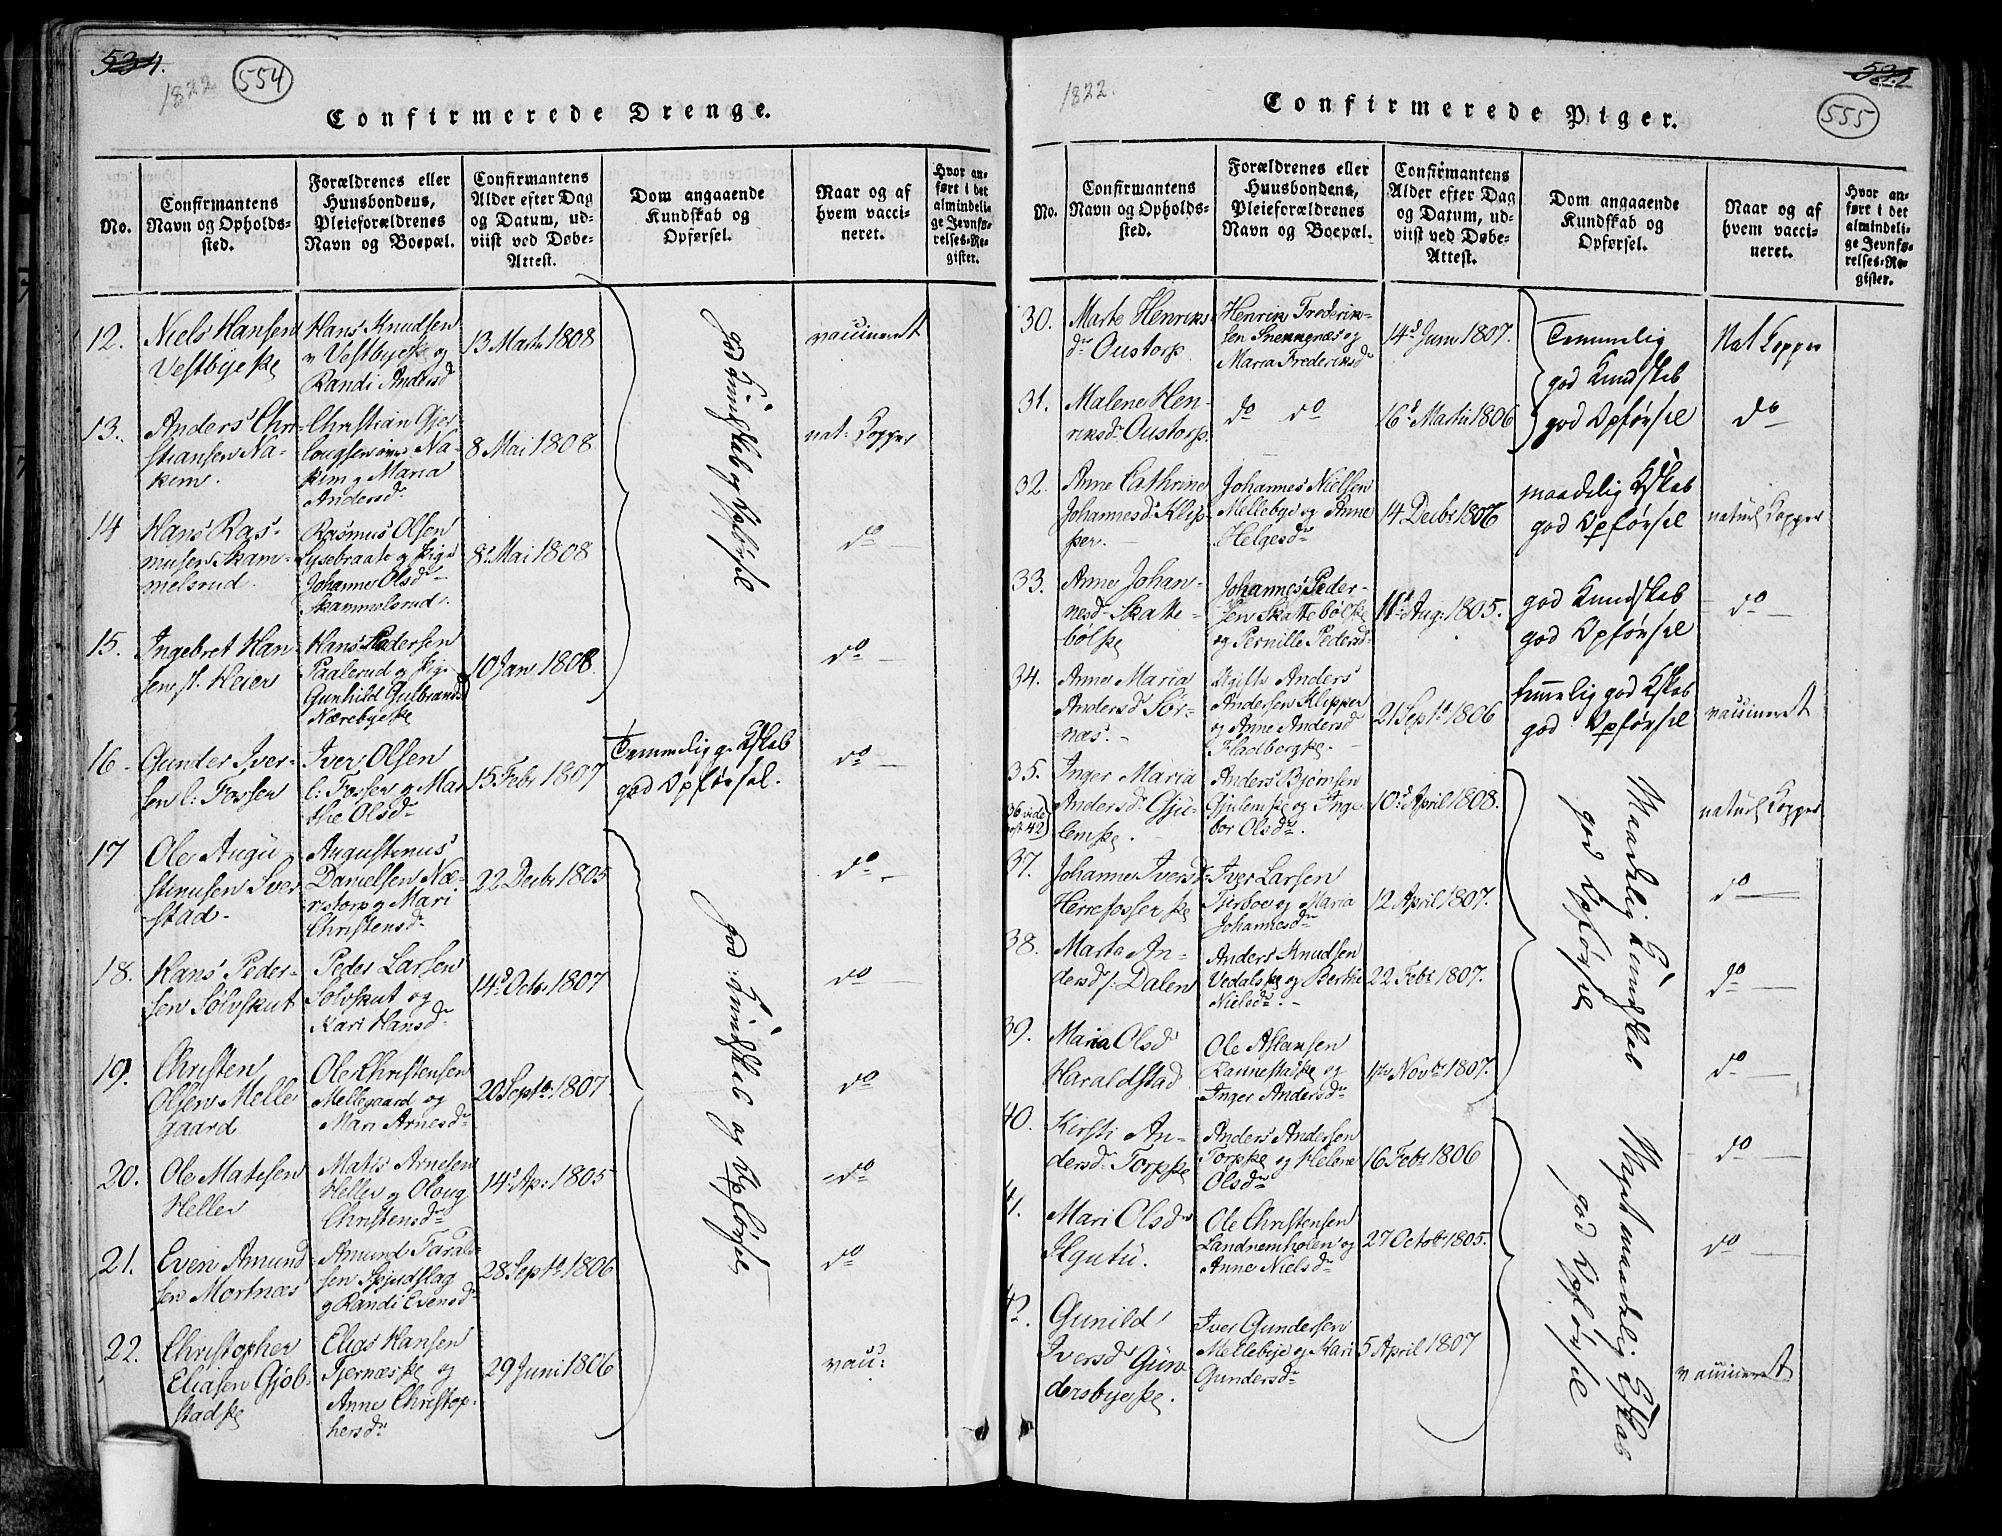 534.
1822
554
Confirmerede Drenge.
No.
Confirmantens
Navn og Opholds-
sted.
Forældrenes eller
Huusbondens,
Pleieforældrenes
Navn og Boepæl.
Confirmantens
Alder efter Dag
og Datum, ud-
viist ved Døbe-
Attest.
Dom angaaende
Kundskab og
Opførsel.
Naar og af
hvem vacci-
neret.
Hvor an-
ført i det
almindeli-
ge Jevnfø-
relses-Re-
gister.
12.
Niels Hansen
Vestbyeske
Hans Knudsen
Vestbyeske og
Randi Andersd
13 Marts 1808
god Kundskab og Opførsel
vaccineret
13.
Anders Chri-
stiansen Na-
kim.
Christian Gjer-
lougsen Na-
kim og Maria
Andersdr
8 Mai 1808
nat: Kopper
14
Hans Ras-
musen Skam-
melsrud.
Rasmus Olsen
Lysebraate og Pige
Johanne Olsdr
Skammelsrud.
8 Mai 1808
do
15.
Ingebret Han-
sen Heier
Hans Pedersen
Paalerud og Pige
Gunhild Gulbrandsd
Nærebyeske
10 Jan 1808
do
16
Gunder Iver-
sen l: Fossen
Iver Olsen
l: Fossen og Mar
the Olsdr
15 Febr 1807
Temmelig g. Kskab
god Opførsel.
do
17
Ole Augu-
stinusen Sver
stad
Augustinus
Danielsen Næ-
restorp og Mari
Christensdr
22 Decbr 1805
god Kundskab og Opførsel
do
18.
Hans Peder-
sen Sølvskut
Peder Larsen
Sølvskut og
Kari Hansdr
14d Octbr 1807
do
19.
Christen
Olsen Melle
gaard
Ole Christensen
Mellegaard og
Mari Arnesdr
20 Septbr 1807
do
20.
Ole Matisen
Heller
Matis Arnesen
Heller og Oloug
Christensdr
14d Ap: 1805
do
21.
Even Amund
sen Mortnæs
Amund Tarald-
sen Spjudslag
og Randi Evensdr
28 Septbr 1806
do
22.
Christopher
Eliasen Gjøb-
stadske
Elias Hansen
Tjernæske og
Anne Christop-
hersdr
29 Juni 1806
vacc:
535
1822.
555
Confirmerede Piger.
No.
Confirmantens
Navn og Opholds-
sted.
Forældrenes eller
Huusbondens,
Pleieforældrenes
Navn og Boepæl.
Confirmantens
Alder efter Dag
og Datum, ud-
viist ved Døbe-
Attest.
Dom angaaende
Kundskab og
Opførsel.
Naar og af
hvem vacci-
neret.
Hvor an-
ført i det
almindeli-
ge Jevnfø-
relses-Re-
gister.
30.
Marte Henriks-
dr Oustorp
Henrik Frederik-
sen Snekkenæs og
Maria Frederiksd
14d Juni 1807.
Temmelig
god Kundskab
god Opførsel
Nat Kopper
31.
Malene Hen-
riksdr Oustorp.
do do
16d Martii 1806
do
32.
Anne Cathrine
Johannesdr Klip-
per.
Johannes Nielsen
Mellebye og Anne
Helgesdr
14 Decbr 1806
maadelig Kskab
god Opførsel
naturl Kopper
33.
Anne Johan-
nesdr Skatte-
bølske
Johannes Peder-
sen Skattebølske
og Pernille Pedersd.
11d Aug: 1805.
god Kundskab
god Opførsel
do
34.
Anne Maria
Andersdr Sør-
næs.
Anders
Andersen Klipper
og Anne Andersd
Fladbergske.
21 Septbr 1806
temmelig god Kskab
god Opførsel
vaccineret
35.
Inger Maria
Andersdr Gju-
lemske.
Anders Bjørnsen
Gjulemske og Inge
bor Olsdr.
10d April 1808.
Maadelig Kundskab
god Opførsel
naturl Kopper
36 vide
42
37.
Johanne Iversdr
Herrefosserske
Iver Larsen
Tjerboe og Maria
Johannesdr
12 April 1807.
do
38.
Marte An-
dersdr Dalen
Anders Knudsen
Vedalske og Berthe
Nielsdr.
22 Febr 1807.
do
39.
Maria Olsd
Haraldstad
Ole Aslansen
Rannestadske og
Inger Andersdr
1ste Novbr 1807.
do
40.
Kirsti An-
dersdr Torpske
Anders Andersen
Torpske og Helene
Olsdr
16 Febr 1806
Meget maadelig Kskab
god Opførsel
do
41.
Mari Olsdr
Ilgutu.
Ole Christensen
Landnemholen og
Anne Nielsdr
27 Octobr 1805.
do
42.
Gunild
Iversdr Gun-
dersbyeske.
Iver Gundersen
Mellebye og Kari
Gundersdr
5 April 1807
vaccineret